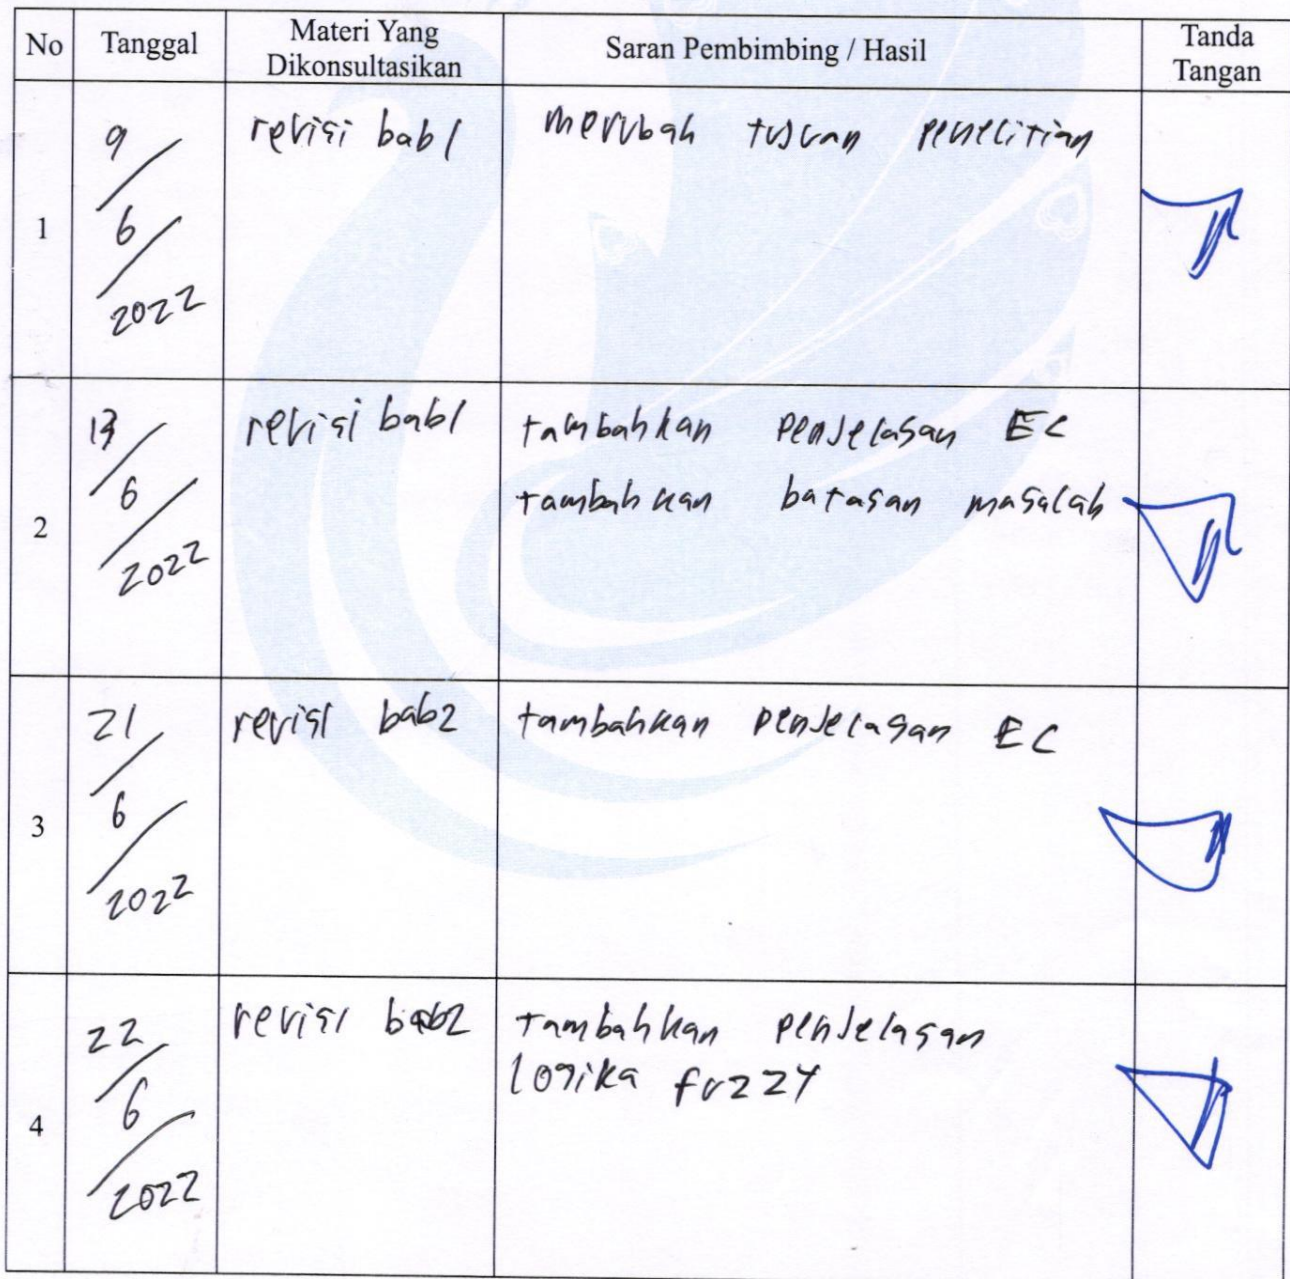 No Tanggal Materi Yang Dikonsultasikan Saran Pembimbing / Hasil Tanda Tangan
1 9/6/2022 revisi bab 1 merubah tujuan penelitian
2 13/6/2022 revisi bab1 tambahkan penjelasan EC
tambahkan batasan masalah
3 21/6/2022 revisi bab2 tambahkan penjelasan EC
4 22/6/2022 revisi bab2 tambahkan penjelasan
logika fuzzy